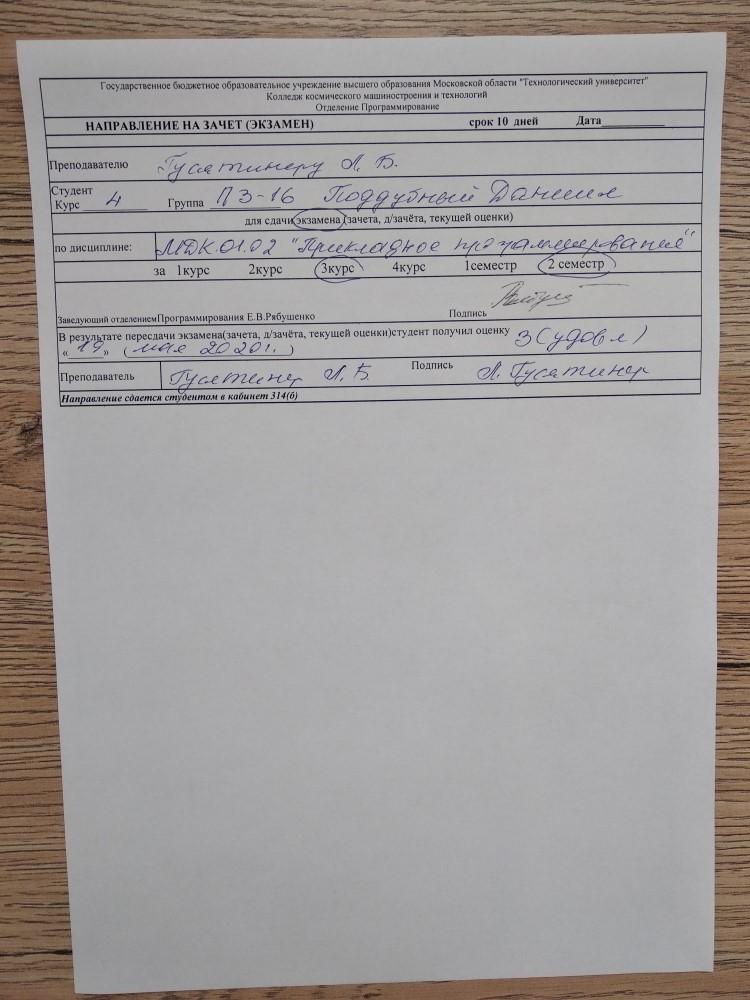 Государственное бюджетное образовательное учреждение высшего образования Московской области "Технологический университет"
Колледж космического машиностроения и технологий
Отделение Программирование
НАПРАВЛЕНИЕ НА ЗАЧЕТ (ЭКЗАМЕН) срок 10 дней Дата__________
Преподавателю Гусятинеру Л. Б.
Студент
Курс 4 Группа П3-16 Поддубный Даниил
для сдачи экзамена (зачета, д/зачёта, текущей оценки)
по дисциплине: МДК.01.02 "Прикладное программирование"
за 1курс 2курс 3курс 4курс 1семестр 2 семестр
Заведующий отделением Программирования Е.В.Рябушенко Подпись
В результате пересдачи экзамена(зачета, д/зачёта, текущей оценки)студент получил оценку 3 (удовл)
« 19 » ( мая 2020г. )
Преподаватель Гусятинер Л. Б. Подпись Л. Гусятинер
Направление сдается студентом в кабинет 314(б)